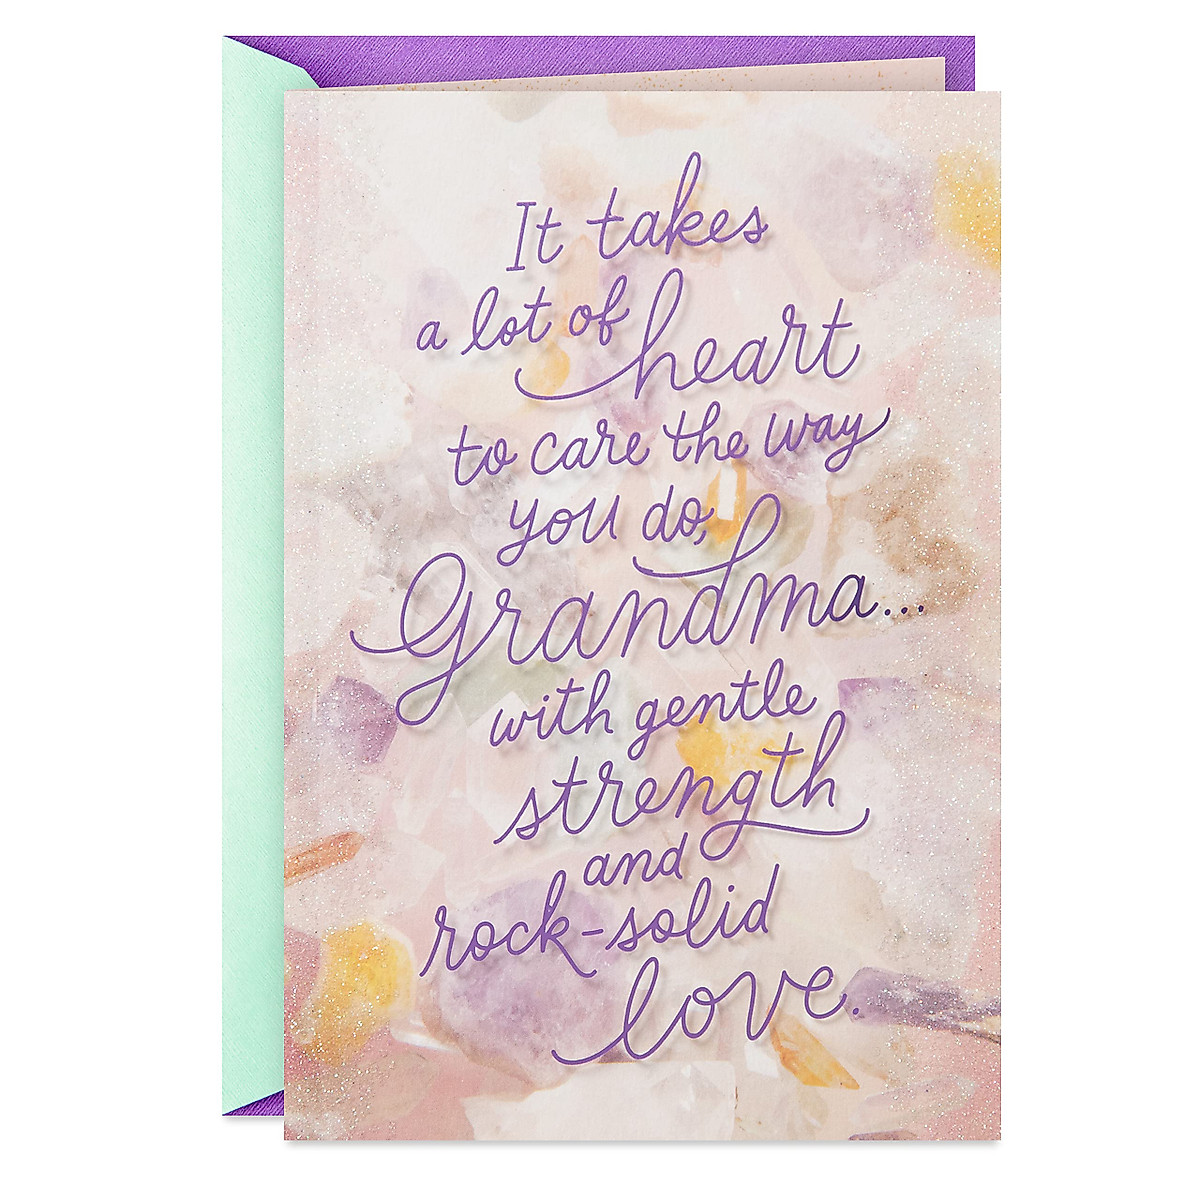 It takes
a lot of heart
to care the way
you do,
Grandma...
with gentle
strength
and
rock-solid
love.